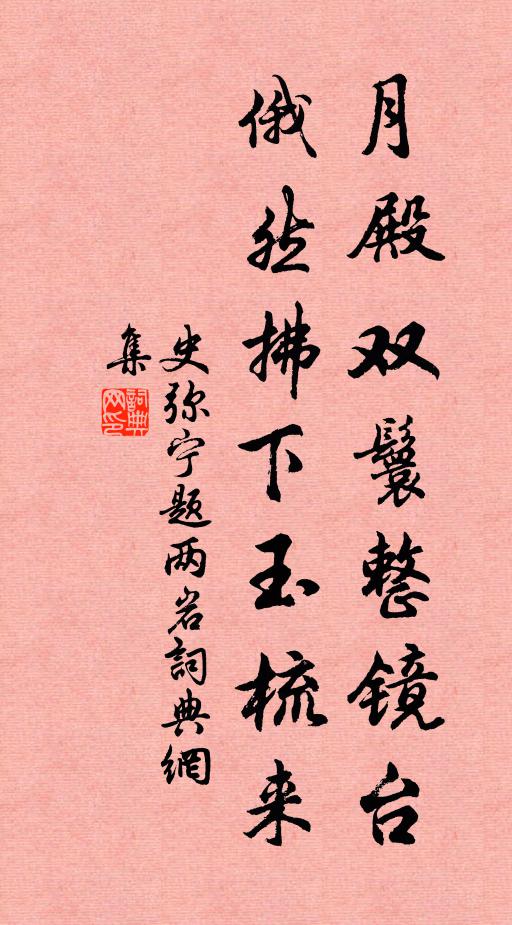 月殿双鬟整镜台
俄然拂下玉梳来
史弥宁题两岩詞典網
集
詞典网印